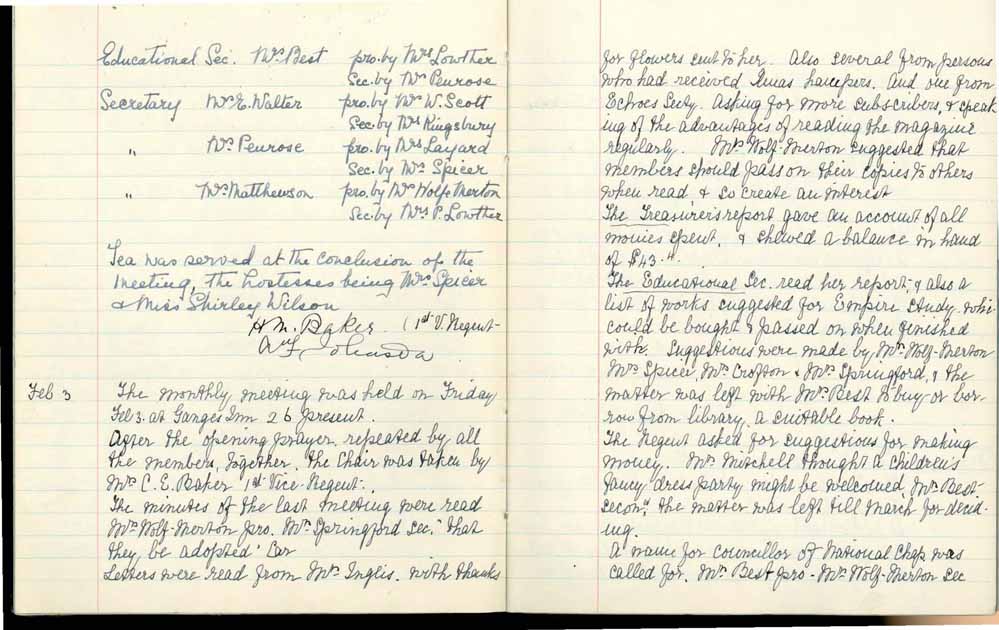 Educational Sec. Mrs Best pro. by Mrs Lowther
Sec. by Mrs Penrose
Secretary Mrs E. Walter pro. by Mrs W. Scott
Sec. by Mrs Kingsbury
" Mrs Penrose pro. by Mrs Layard
Sec. by Mrs Spicer
" Mrs Matthewson pro. by Mrs Wolf-Merton
Sec. by Mrs P. Lowther
Tea was served at the conclusion of the
meeting, the hostesses being Mrs Spicer
& Miss Shirley Wilson
H M. Baker. (1st V. Regent-
Johnson
Feb 3 The monthly meeting was held on Friday
Feb 3. at Ganges Inn 26 present.
After the opening prayer, repeated by all
the members, together, the Chair was taken by
Mrs C. E. Baker 1st Vice-Regent.
The minutes of the last meeting were read
Mrs Wolf-Merton pro. Mrs Springford sec. "that
they be adopted" Car
Letters were read from Mrs Inglis. with thanks
for flowers sent to her. Also several from persons
who had received Xmas hampers. And one from
Echoes Secty. asking for more subscribers, & speak-
ing of the advantages of reading the magazine
regularly. Mrs Wolf-Merton suggested that
members should pass on their copies to others
when read, & so create an interest
The Treasurer's report gave an account of all
monies spent, & shewed a balance in hand
of $43.
The Educational Sec. read her report, & also a
list of works suggested for Empire study. whi
could be bought & passed on when finished
with. Suggestions were made by Mrs Wolf-Merton
Mrs Spicer, Mrs Crofton & Mrs Springford, & the
matter was left with Mrs Best to buy or bor-
row from library, a suitable book.
The Regent asked for suggestions for making
money. Mrs Mitchell thought a children's
fancy dress party might be welcomed, Mrs Best-
secon. the matter was left till March for decid-
ing.
A name for councillor of National Chap. was
called for. Mrs Best pro - Mrs Wolf-Merton sec